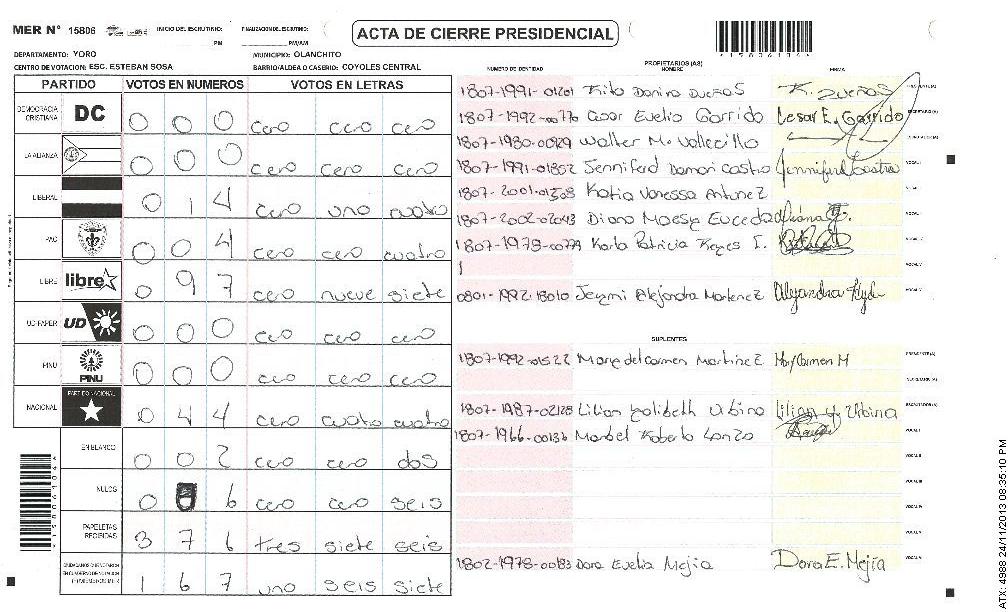 MER N° 15806 INICIO DEL ESCRUTINIO: PM FINALIZACION DEL ESCRUTINIO: PM/AM
ACTA DE CIERRE PRESIDENCIAL
DEPARTAMENTO: YORO MUNICIPIO: OLANCHITO
CENTRO DE VOTACION: ESC. ESTEBAN SOSA BARRIO/ALDEA O CASERIO: COYOLES CENTRAL
PARTIDO VOTOS EN NUMEROS VOTOS EN LETRAS
DEMOCRACIA CRISTIANA DC 0 0 0 cero cero cero
LA ALIANZA 0 0 0 cero cero cero
LIBERAL 0 1 4 cero uno cuatro
PAC 0 0 4 cero cero cuatro
LIBRE libre 0 9 7 cero nueve siete
UD-FAPER UD 0 0 0 cero cero cero
PINU PINU 0 0 0 cero cero cero
NACIONAL PARTIDO NACIONAL 0 4 4 cero cuatro cuatro
EN BLANCO 0 0 2 cero cero dos
NULOS 0 0 6 cero cero seis
PAPELETAS RECIBIDAS 3 7 6 tres siete seis
1 6 7 uno seis siete
NUMERO DE IDENTIDAD PROPIETARIOS (AS) NOMBRE FIRMA
1807-1991-01201 Dueñas K. Dueñas PRESIDENTE(A)
1807-1992-00776 Cesar Evelio Garrido Cesar E. Garrido SECRETARIO(A)
1807-1980-00929 Walter M. Vallecillo
1807-1991-01852 Jenniferd Damari Castro Jenniferd Castro VOCAL I
1807-2001-01309 Katia Vanessa Antunez
1807-2002-02043 Diana Euceda
1807-1978-00779 Karla Patricia Reyes
0801-1992-18010 Alejandra Martinez Alejandra VOCAL V
SUPLENTES
1807-1992-01522 Marye del Carmen Martinez Mary Carmen M PRESIDENTE(A)
SECRETARIO(A)
1807-1987-02128 Lilian Ubina Lilian Y. Urbina ESCRUTADOR(A)
1807-1966-00136 Roberto VOCAL I
VOCAL II
VOCAL III
VOCAL IV
VOCAL V
1802-1978-00183 Dora Evelia Mejia Dora E. Mejía
ATX: 4988 24/11/2013 08:35:10 PM